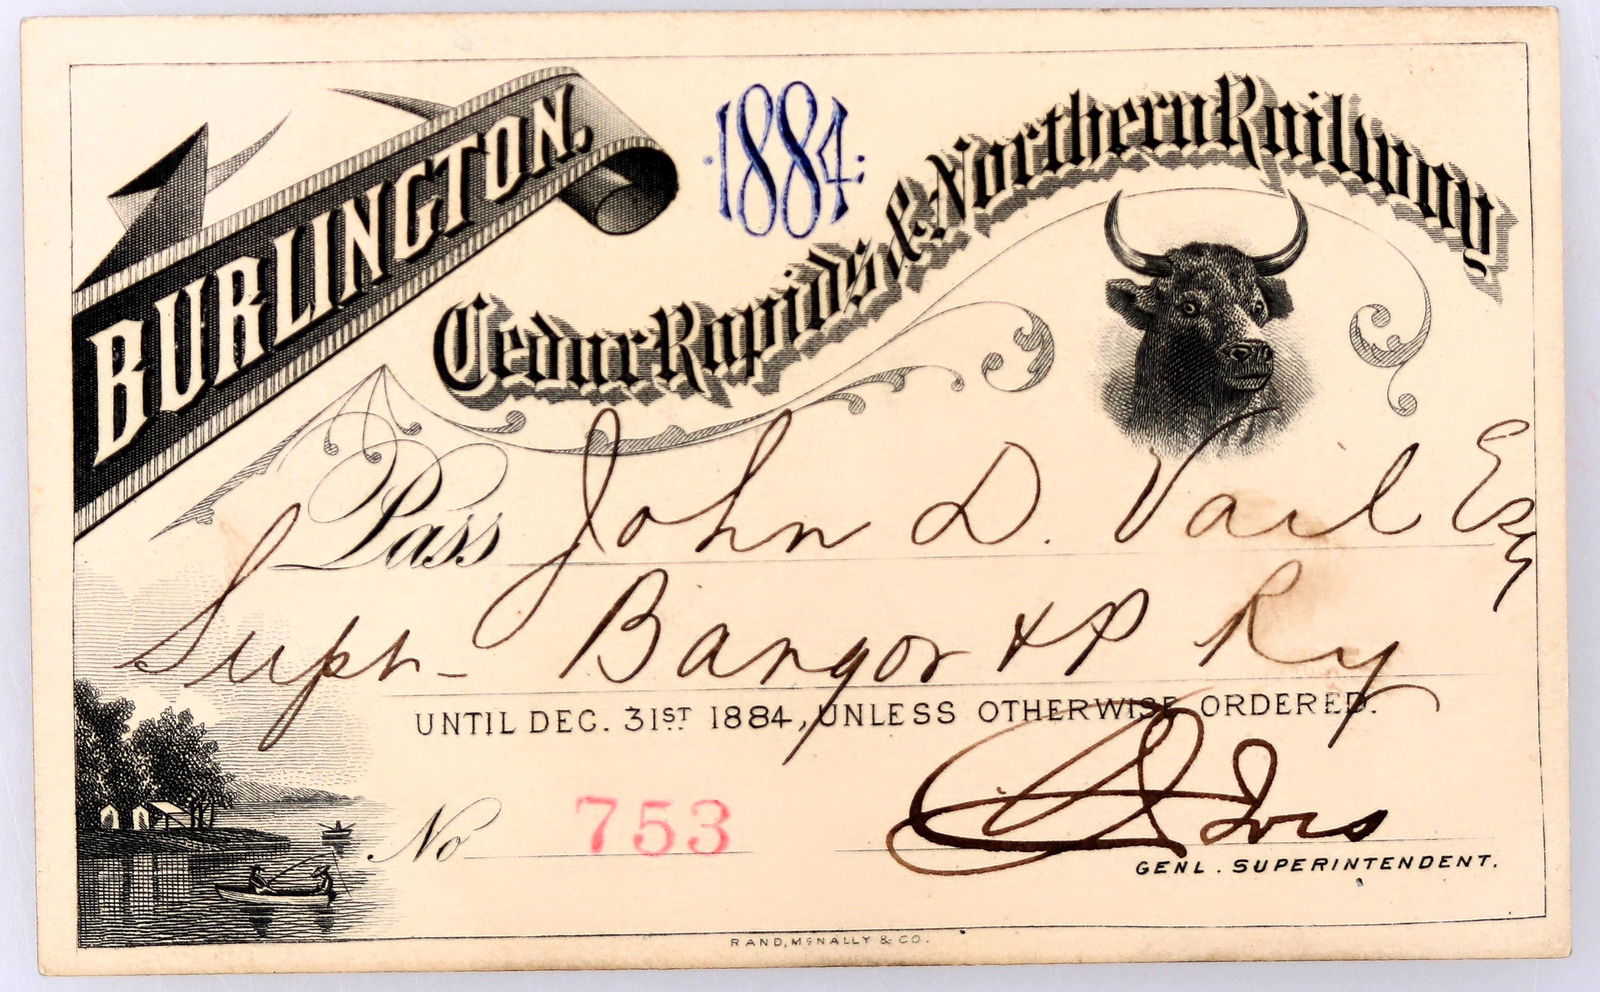 BURLINGTON.
1884
Cedar Rapids & Northern Railway
Pass John D. Vail Esq
Supt- Bangor & P Ry
UNTIL DEC. 31ST 1884, UNLESS OTHERWISE ORDERED.
No 753
Ives
GENL. SUPERINTENDENT.
RAND, MCNALLY & CO.